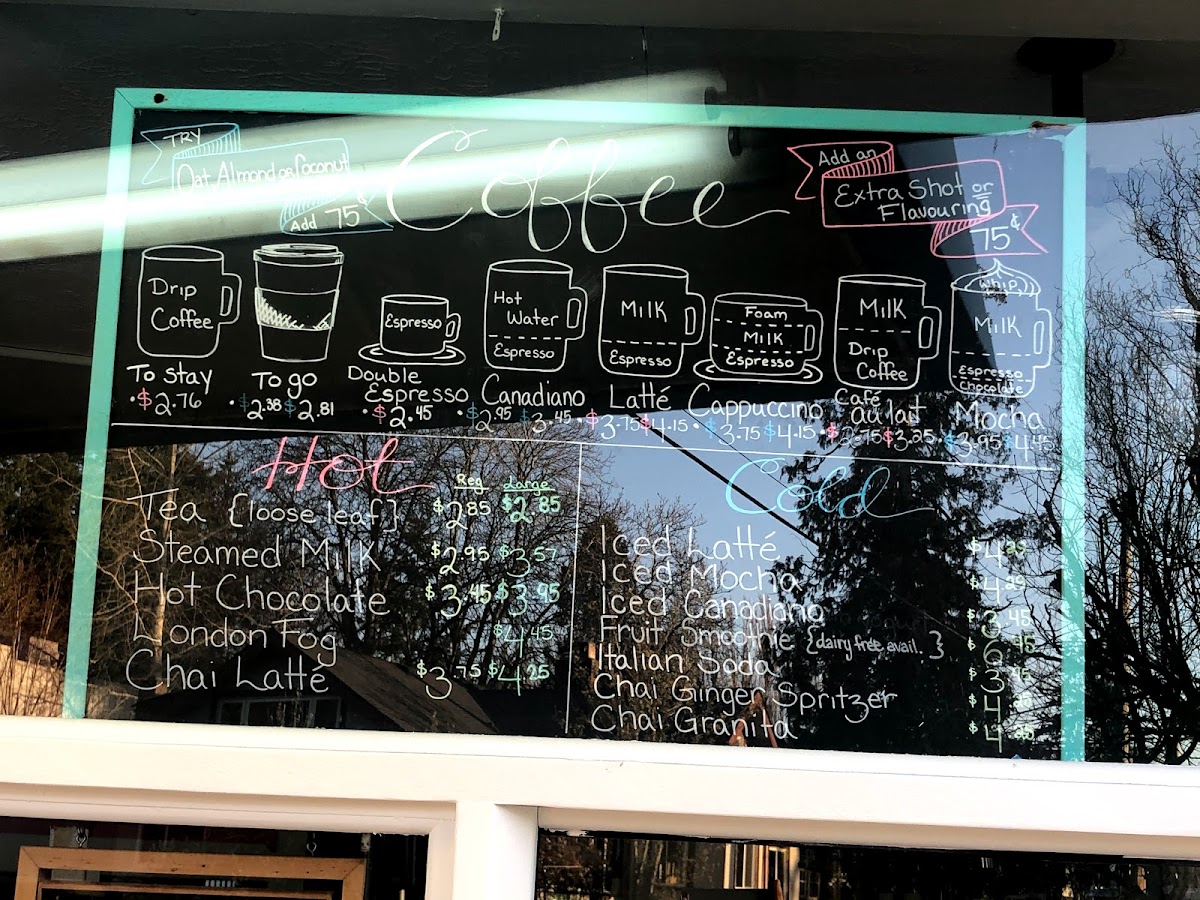 TRY
Oat, Almond or Coconut
Add 75¢
Coffee
Add an
Extra Shot or
Flavouring
75¢
Drip
Coffee
Espresso
Hot
Water
Espresso
Milk
Espresso
Foam
Milk
Espresso
Milk
Drip
Coffee
Whip
Milk
Espresso
Chocolate
To stay
• $2.76
To go
• $2.38 $2.81
Double
Espresso
• $2.45
Canadiano
• $2.95 $3.45
Latté
• $3.75 $4.15
Cappuccino
• $3.75 $4.15
Café
au lait
$3.25
Mocha
• $3.95 $4.45
Hot
Reg Large
Tea {loose leaf} $2.85 $2.85
Steamed Milk $2.95 $3.57
Hot Chocolate $3.45 $3.95
London Fog $4.45
Chai Latté $3.75 $4.25
Cold
Iced Latté
Iced Mocha
Iced Canadiano
Fruit Smoothie {dairy free avail.}
Italian Soda
Chai Ginger Spritzer
Chai Granita